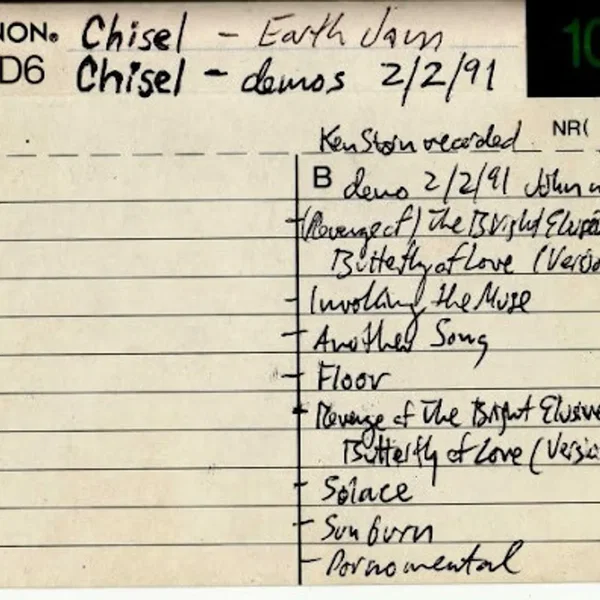 NON® Chisel - Earth Jam
D6 Chisel - demos 2/2/91
10
Ken Stein recorded NR(
B demo 2/2/91 John
(Revenge of) The Bright Elusi
Butterfly of Love (Versio
Invoking the Muse
Another Song
Floor
Revenge of The Bright Elusive
Butterfly of Love (Versio
Solace
Sunburn
Pornomental